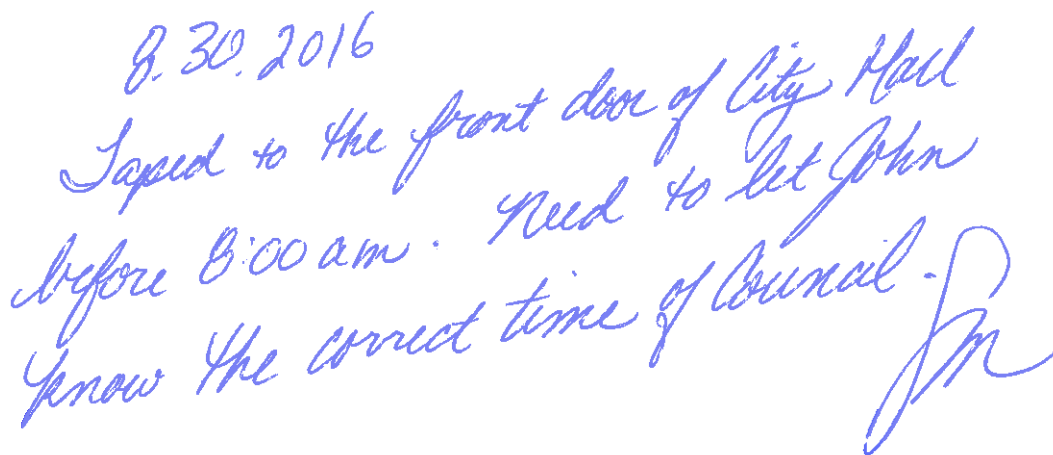 8.30.2016
Taped to the front door of City Hall
before 8:00 am. Need to let John
know the correct time of Council.